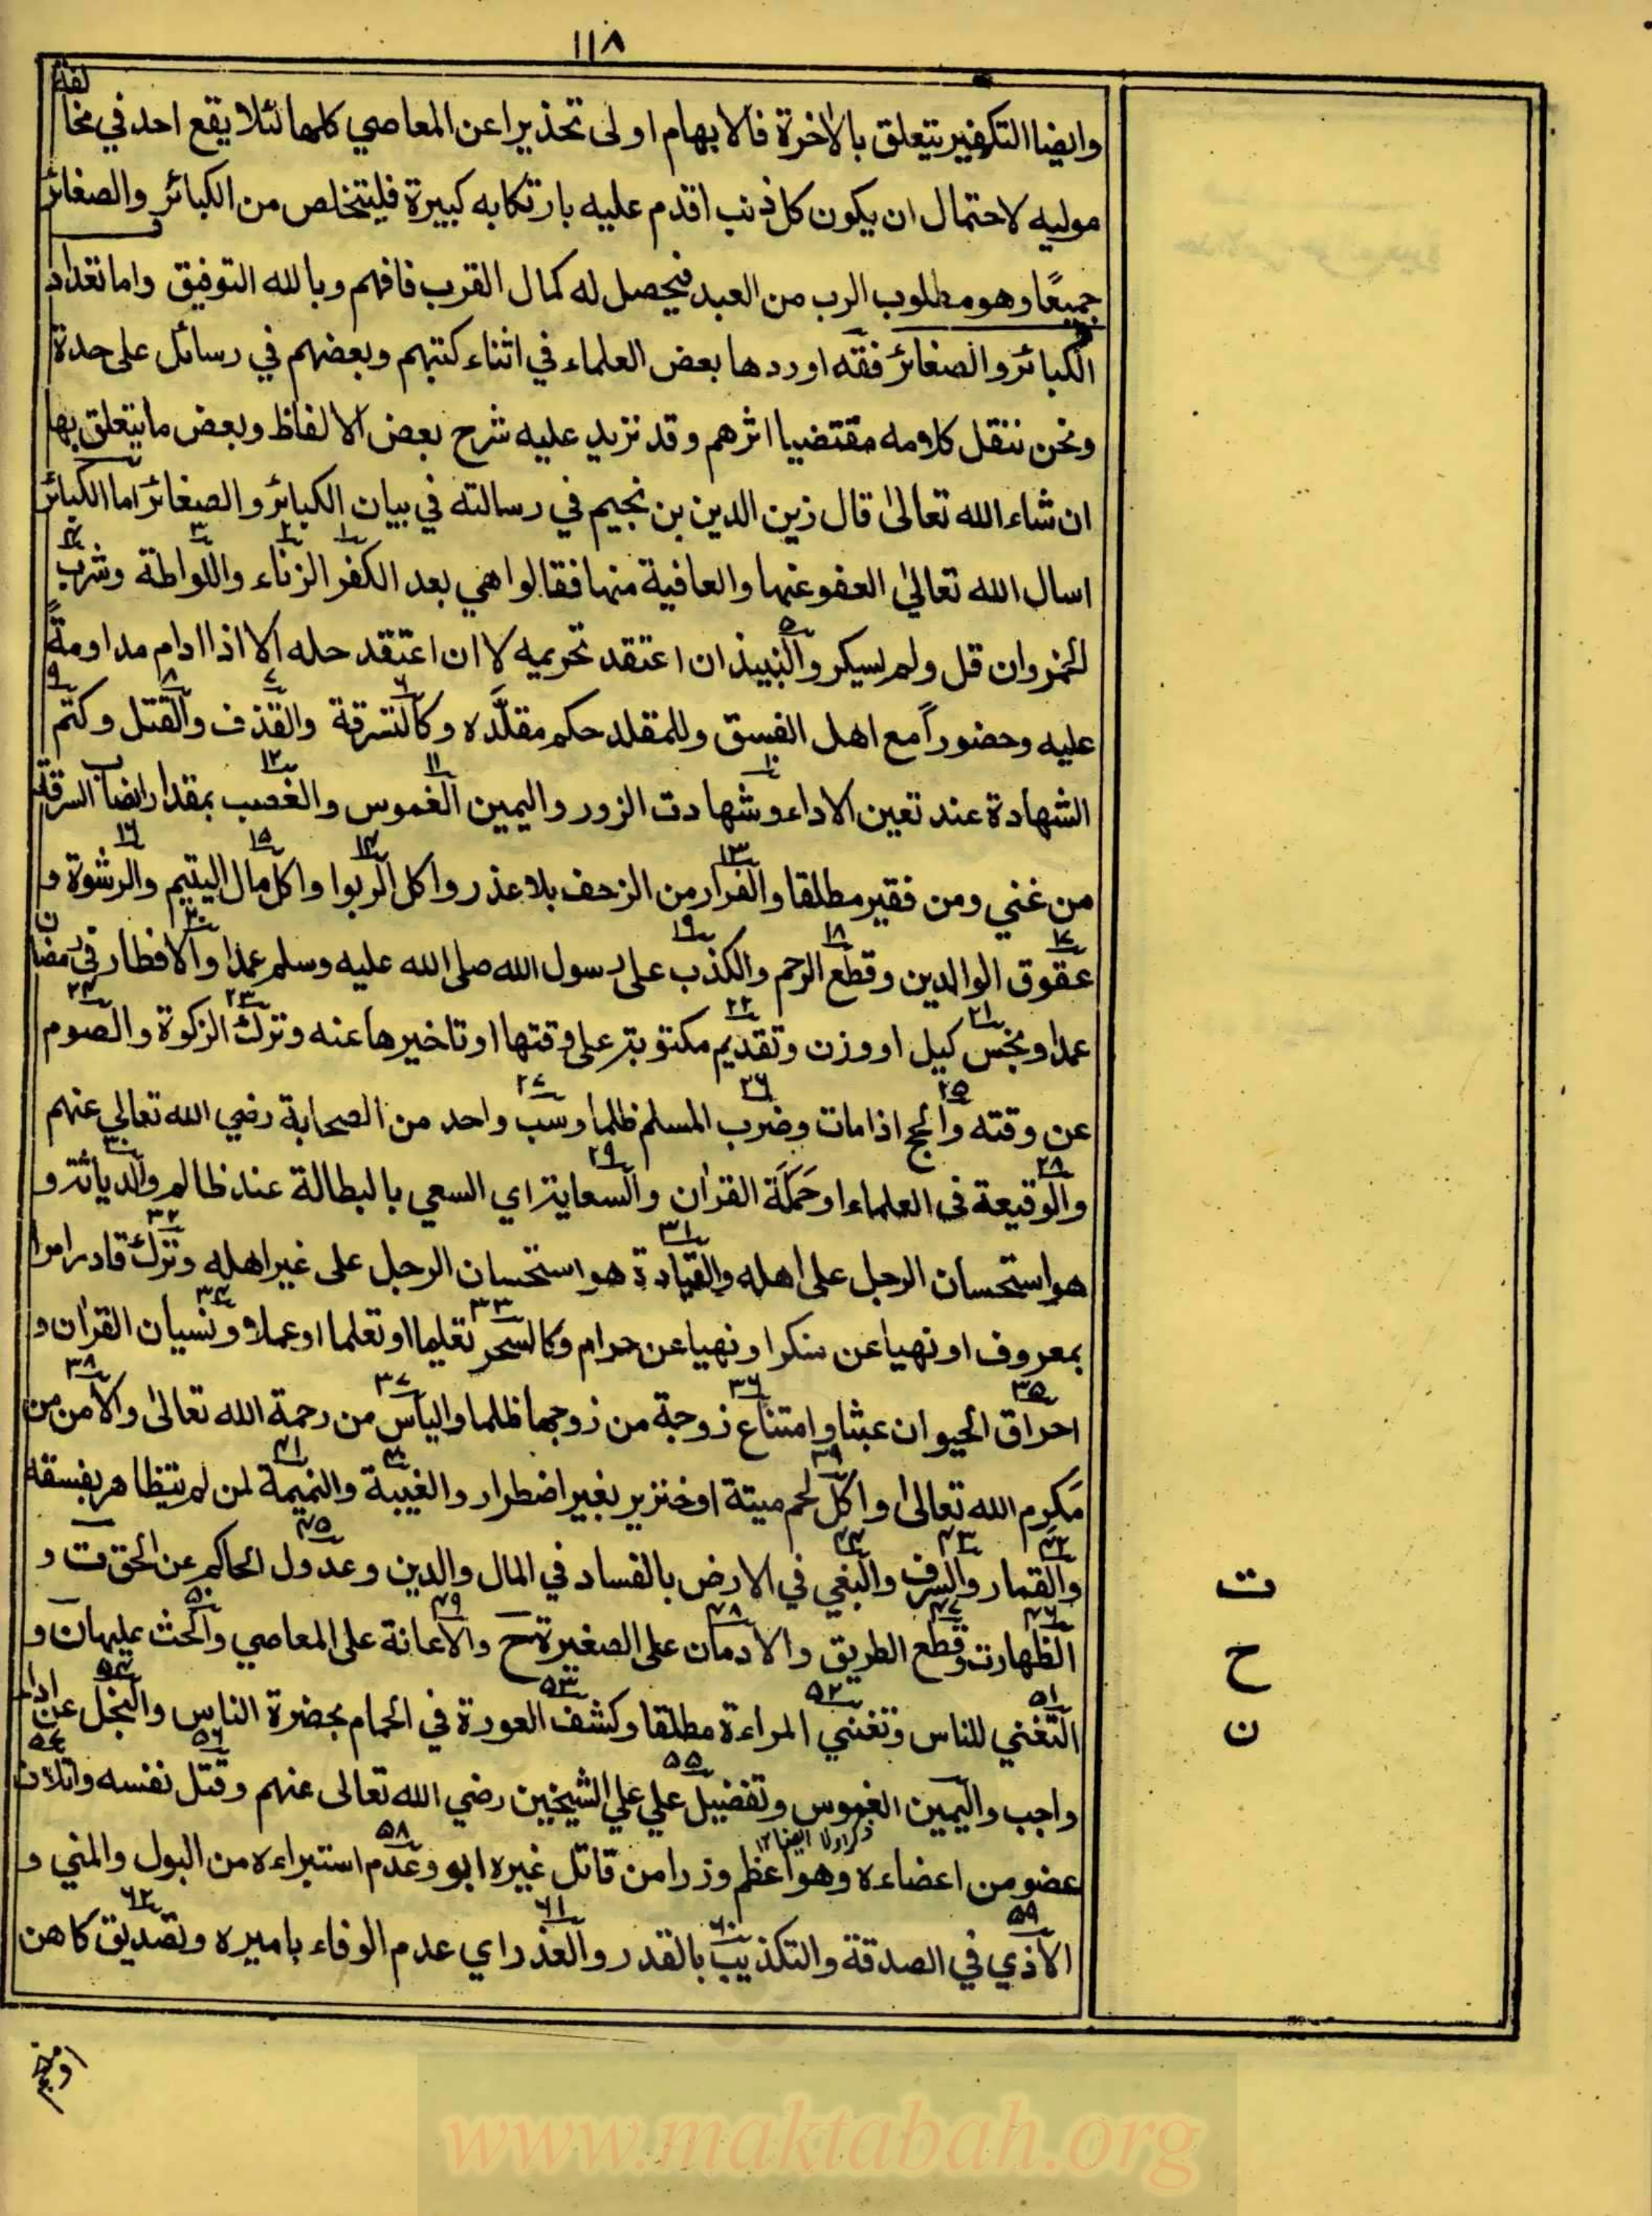 ١١٨
وايضا التكفير يتعلق بالاخرة فالابهام اولى تحذيرا عن المعاصي كلها لئلا يقع احد في مخالفة
موليه لاحتمال ان يكون كل ذنب اقدم عليه بارتكابه كبيرة فليتخلص من الكبائر والصغائر
جميعًا وهو مطلوب الرب من العبد فيحصل له كمال القرب فافهم وبالله التوفيق واما تعداد
الكبائر والصغائر فقه اوردها بعض العلماء في اثناء كتبهم وبعضهم في رسائل على حدة
ونحن ننقل كلامه مقتضيا اثرهم وقد نزيد عليه شرح بعض الالفاظ وبعض ما يتعلق بها
ان شاء الله تعالىٰ قال زين الدين بن نجيم في رسالته في بيان الكبائر والصغائر اما الكبائر
اسال الله تعالىٰ العفو عنها والعافية منها فقالوا هي بعد الكفر ١ الزناء ٢ واللواطة ٣ وشرب ٤
الخمر وان قل ولم يسكر والنبيذ ٥ ان اعتقد تحريمه لا ان اعتقد حله الا اذا ادام مداومةً
عليه وحضوراً مع اهل الفسق وللمقلد حكم مقلَّده وكالسرقة ٦ والقذف ٧ والقتل ٨ وكتم ٩
الشهادة عند تعين الاداء وشهادت ١٠ الزور واليمين الغموس ١١ والغصب ١٢ بمقدار نصاب السرقة
من غني ومن فقير مطلقا والفرار ١٣ من الزحف بلا عذر واكل الربوا ١٤ واكل مال اليتيم ١٥ والرشوة ١٦ و
عقوق ١٧ الوالدين وقطع الرحم ١٨ والكذب ١٩ على رسول الله صلى الله عليه وسلم عمدا والافطار ٢٠ في رمضان
عمدا وبخس ٢١ كيل او وزن وتقديم ٢٢ مكتوبة على وقتها او تاخيرها عنه وترك ٢٣ الزكوة والصوم ٢٤
عن وقته والحج ٢٥ اذا مات وضرب ٢٦ المسلم ظلما وسب ٢٧ واحد من الصحابة رضي الله تعالي عنهم
والوقيعة ٢٨ في العلماء او حَمَلَة القراٰن والسعاية ٢٩ اي السعي بالبطالة عند ظالم والدياثة ٣٠ و
هو استحسان الرجل على اهله والقيادة ٣١ هو استحسان الرجل على غير اهله وترك ٣٢ قادر امرا
بمعروف او نهيا عن منكر او نهيا عن حرام وكالسحر ٣٣ تعليما او تعلما او عملا ونسيان ٣٤ القراٰن و
احراق ٣٥ الحيوان عبثا وامتناع ٣٦ زوجة من زوجها ظلما والياس ٣٧ من رحمة الله تعالىٰ والامن ٣٨ من
مكر الله تعالىٰ واكل ٣٩ لحم ميتة او خنزير بغير اضطرار والغيبة ٤٠ والنميمة ٤١ لمن لم يتظاهر بفسقه
والقمار ٤٢ والسرف ٤٣ والبغي ٤٤ في الارض بالفساد في المال والدين وعدول ٤٥ الحاكم عن الحق ت و
الظهارت ٤٦ وقطع ٤٧ الطريق والادمان ٤٨ على الصغيرة ح والاعانة ٤٩ على المعاصي والحث ٥٠ عليها ن و
التغني ٥١ للناس وتغني ٥٢ المراءة مطلقا وكشف ٥٣ العورة في الحمام بحضرة الناس والبخل ٥٤ عن اداء
واجب واليمين الغموس وتفضيل ٥٥ علي علي الشيخين رضي الله تعالى عنهم وقتل ٥٦ نفسه واتلاف ٥٧
عضو من اعضاءه وهو اعظم وزرا من قاتل غيره ابو وعدم ٥٨ استبراءه من البول والمني و
الاذي ٥٩ في الصدقة والتكذيب ٦٠ بالقدر والغدر ٦١ اي عدم الوفاء باميره وتصديق ٦٢ كاهن
ت
ح
ن
www.maktabah.org